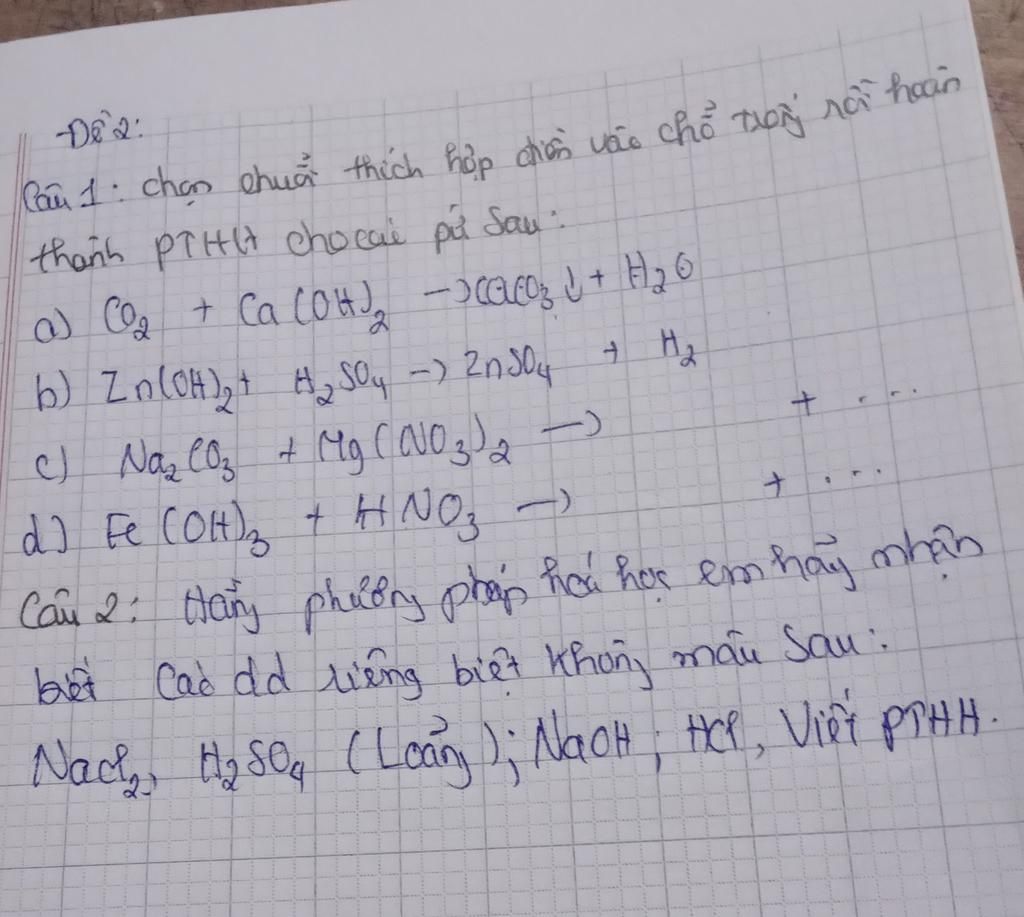 -Đề 2:
Câu 1: chọn chuỗi thích hợp điền vào chổ trống rồi hoàn
thành PTHH cho các pứ Sau:
a) CO₂ + Ca(OH)₂ → CaCO₃↓ + H₂O
b) Zn(OH)₂ + H₂SO₄ → ZnSO₄ + H₂
c) Na₂CO₃ + Mg(NO₃)₂ → + ....
d) Fe(OH)₃ + HNO₃ → + ....
Câu 2: Hằng phương pháp hoá học em hãy nhận
biết Các dd riêng biệt không màu Sau:
NaCl₂, H₂SO₄ (Loãng); NaOH; HCl, Viết PTHH.